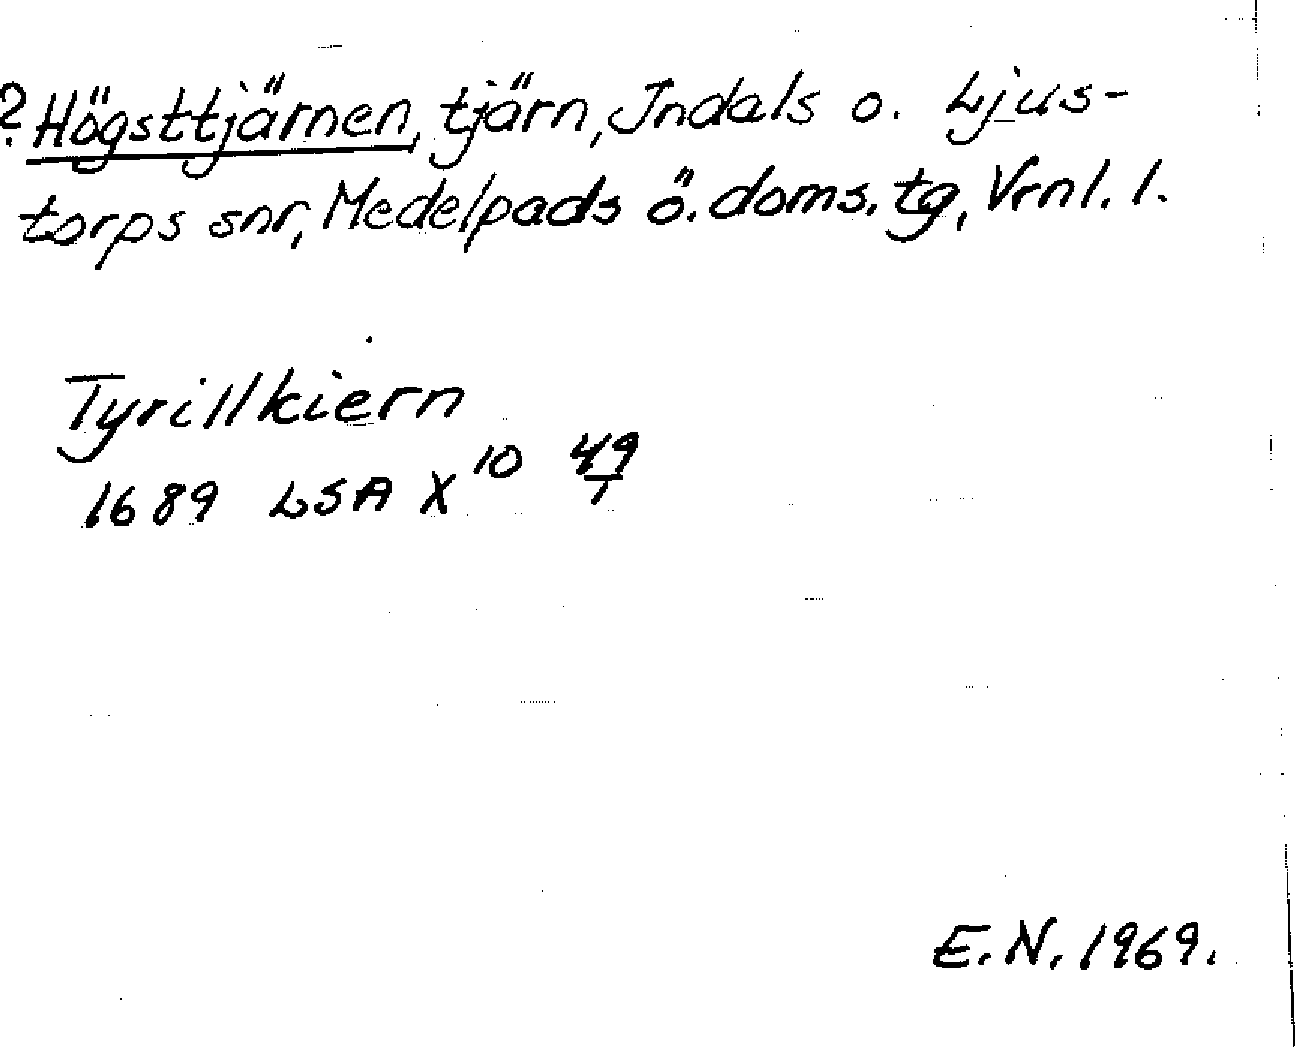 ? Högsttjärnen, tjärn, Indals o. Ljus-
torps snr, Medelpads ö. doms. tg, Vrnl. l.
Tyrillkiern
1689 LSA X 10 49/1
E.N. 1969.